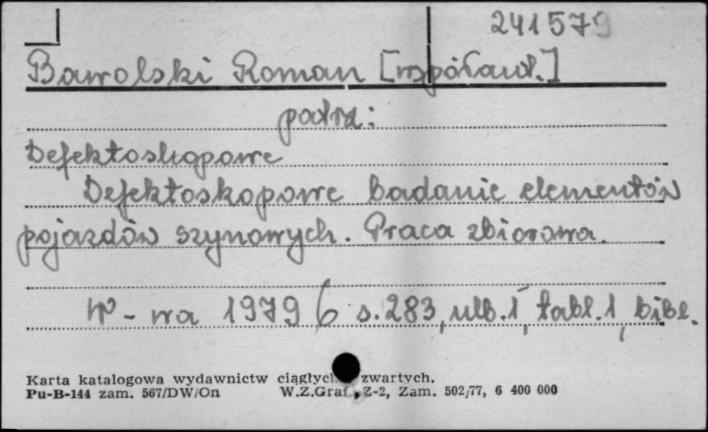 241579
Bawolski Roman [współaut.]
patrz:
Defektoskopowe
Defektoskopowe badanie elementów
pojazdów szynowych. Praca zbiorowa.
W-wa 1979 6 s.283, ulb.1, tabl.1, bibl.
Karta katalogowa wydawnictw ciągłyc zwartych.
Pu-B-144 zam. 567/DW/On W.Z.Graf., Z-2, Zam. 502/77, 6 400 000